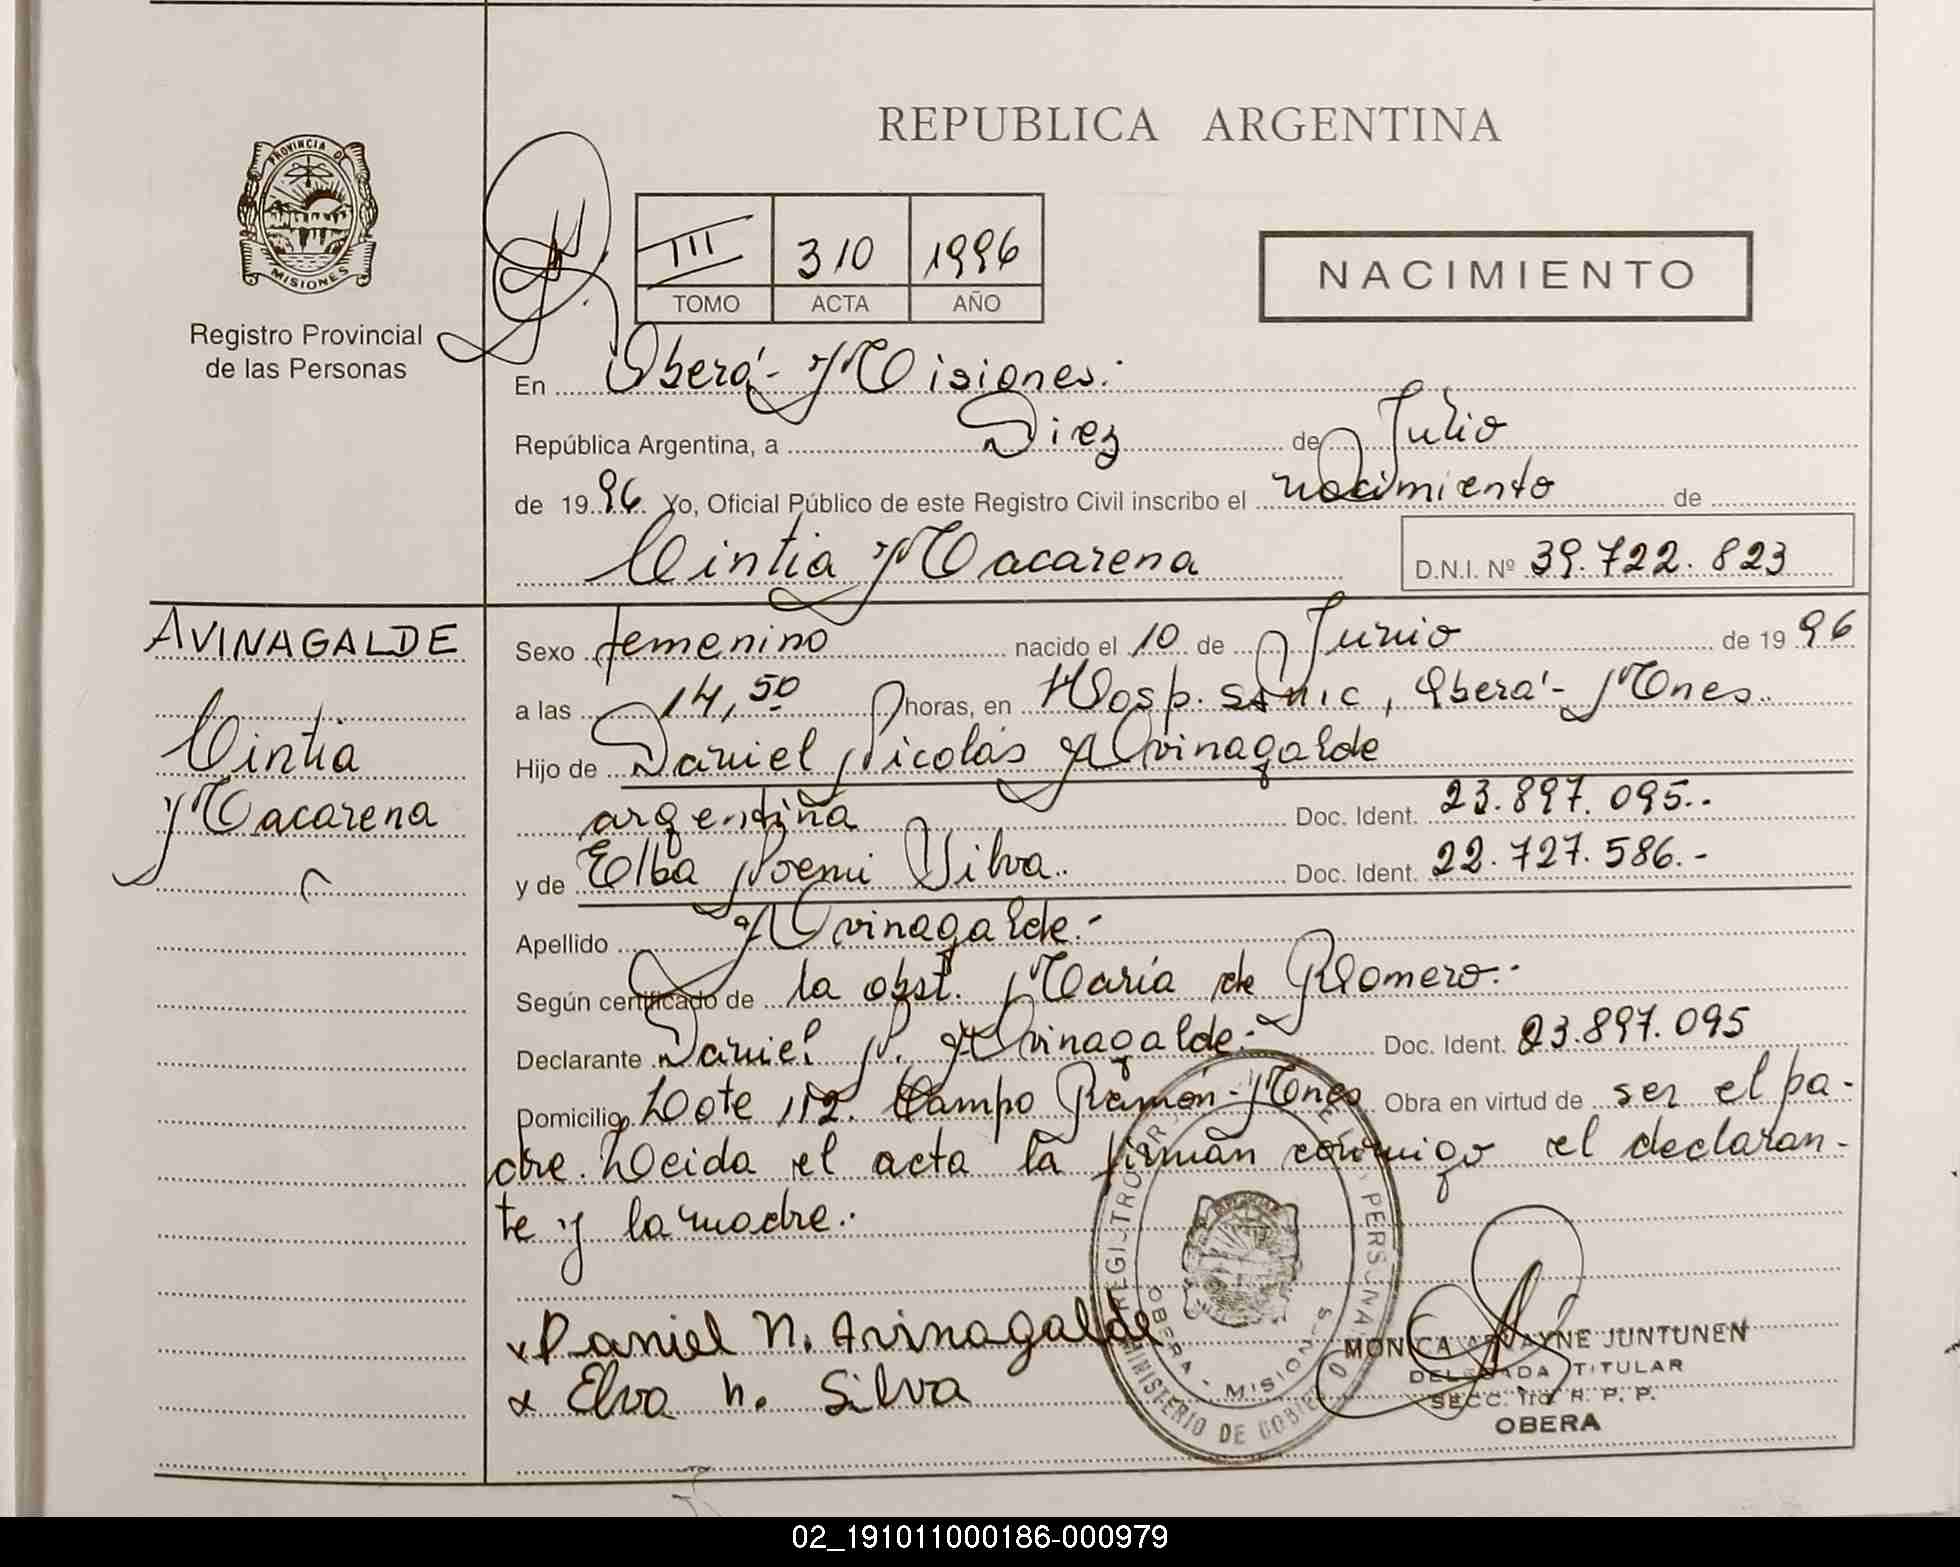 REPUBLICA ARGENTINA
PROVINCIA DE
MISIONES
Registro Provincial
de las Personas
III 310 1996
TOMO ACTA AÑO
NACIMIENTO
En Oberá - Misiones.
República Argentina, a Diez de Julio
de 1996 Yo, Oficial Público de este Registro Civil inscribo el nacimiento de
Cintia Macarena D.N.I. Nº 39.722.823
AVINAGALDE
Cintia
Macarena
Sexo femenino nacido el 10 de Junio de 1996
a las 14,50 horas, en Hosp. SAMIC, Oberá - Mnes.
Hijo de Daniel Nicolás Avinagalde
argentina Doc. Ident. 23.897.095.-
y de Elba Noemi Silva. Doc. Ident. 22.727.586.-
Apellido Avinagalde.-
Según certificado de la obst. María de Romero.-
Declarante Daniel N. Avinagalde.- Doc. Ident. 23.897.095
Domicilio Lote 112. Campo Ramón - Mnes Obra en virtud de ser el pa-
dre. Leida el acta la firman conmigo el declaran-
te y la madre.-
x Daniel N. Avinagalde
x Elva N. Silva
REGISTRO PROV DE LAS PERSONAS
MINISTERIO DE GOBIERNO
OBERA - MISIONES
MONICA JUNTUNEN
DELEGADA TITULAR
SECC. 1ra R. P. P.
OBERA
02_191011000186-000979